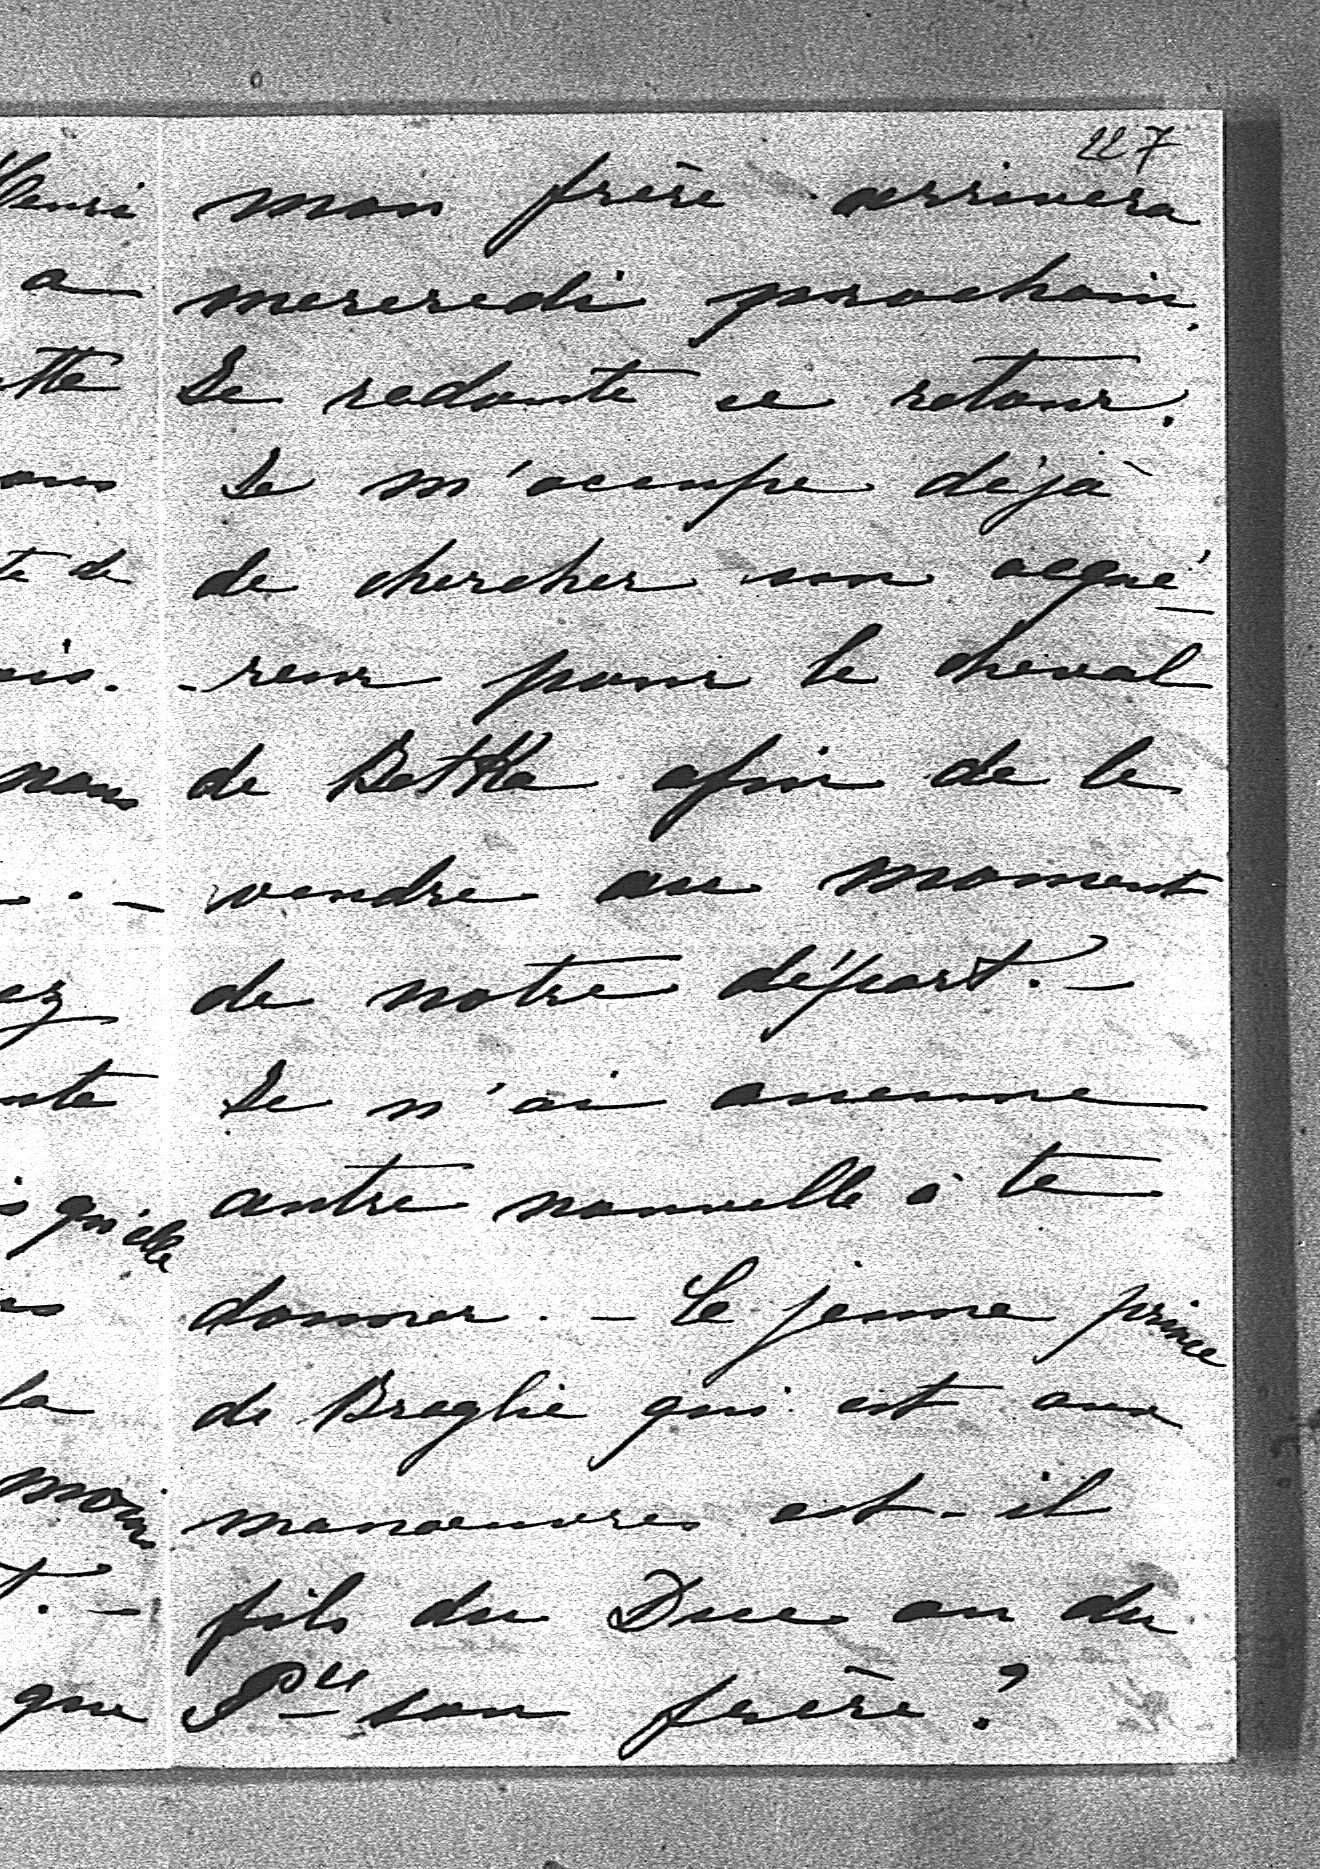 227
mon frère arrivera
mercredi prochain.
Je redoute ce retour.
Je m'occupe déjà
de chercher un acqué-
-reur pour le cheval
de Betka afin de le
vendre au moment
de notre départ. -
Je n'ai aucune
autre nouvelle à te
donner. - Le jeune prince
de Broglie qui est aux
manoeuvres est-il
fils du Duc ou du
Pce son frère?